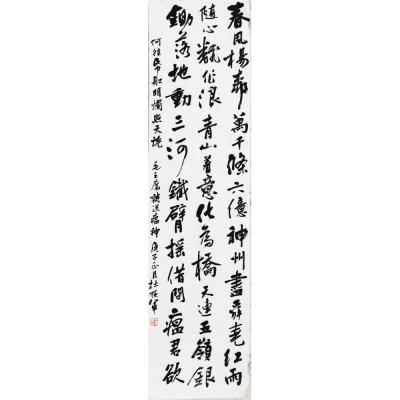 春風楊柳萬千條六億神州盡舜堯紅雨
隨心翻作浪青山着意化為橋天連五嶺銀
鋤落地動三河鐵臂摇借問瘟君欲
何往紙船明燭照天燒 毛主席詩送瘟神 庚子正月